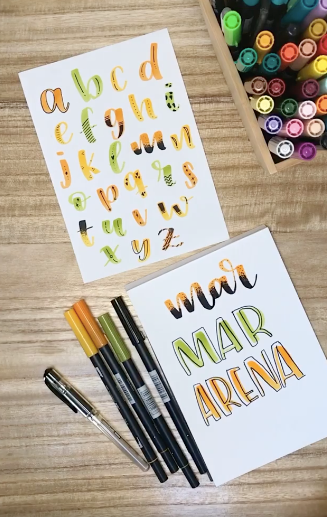 a b c d
e f g h i
j k l m n
o p q r s
t u v w
x y z
mar
MAR
ARENA